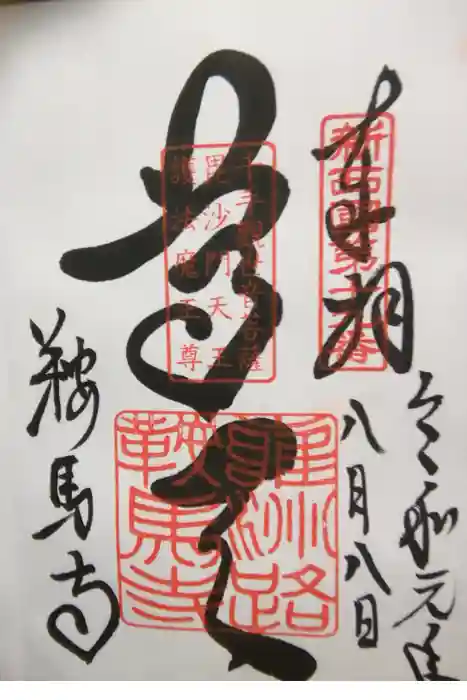 令和元年
八月八日
奉拝
新西國第十九番
尊天
千手觀世音菩薩
毘沙門天王
護法魔王尊
鞍馬寺
鞍馬寺